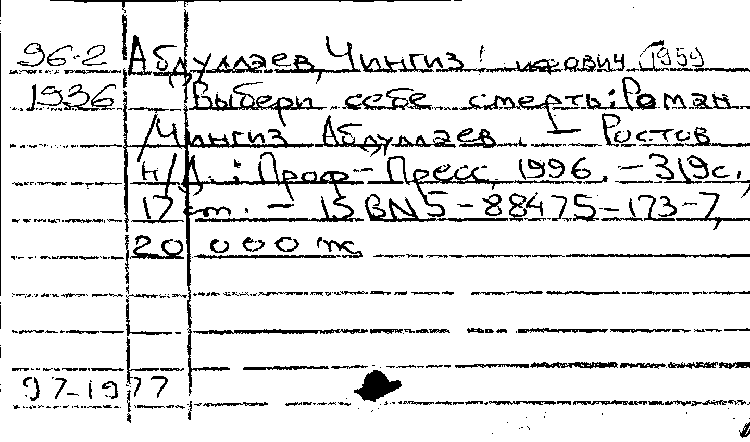 96-2 Абдуллаев, Чингиз! (1959
1936 Выбери себе смерть: Роман
/Чингиз Абдуллаев. — Ростов
н/Д.: Проф-Пресс, 1996. — 319с.,
17 cm. — ISBN 5-88475-173-7,
20 000 тк
97-1977